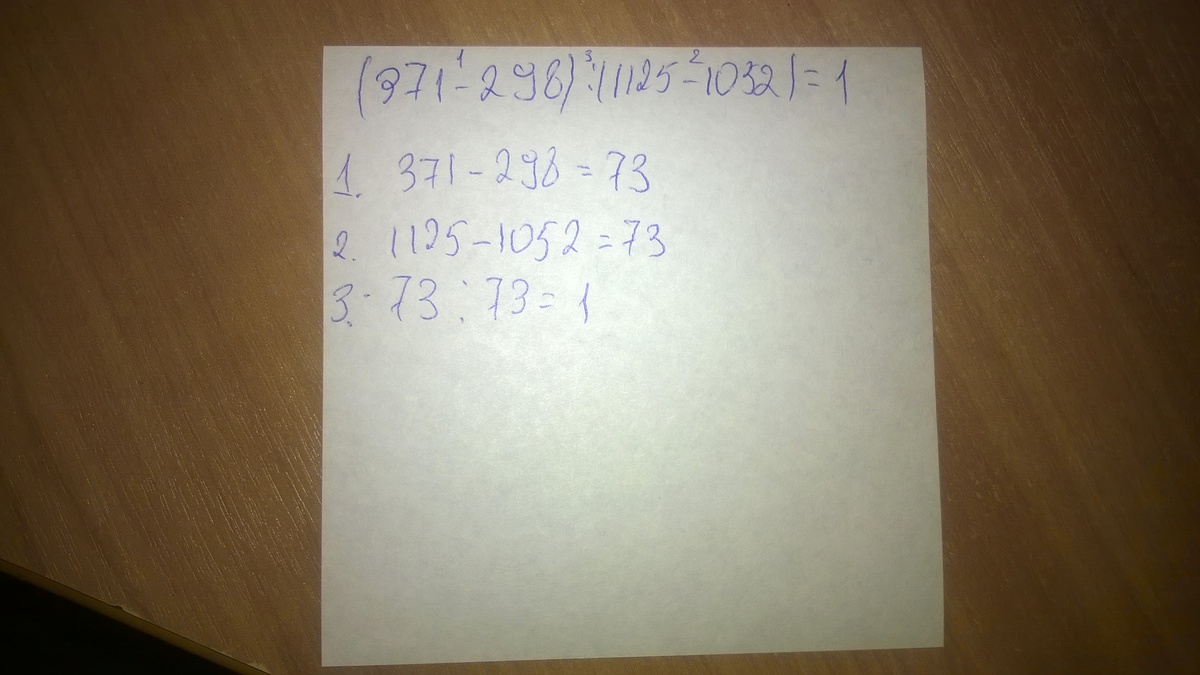 (371¹-298)³:(1125-²1032)=1
1. 371-298=73
2. 1125-1052=73
3. 73:73=1